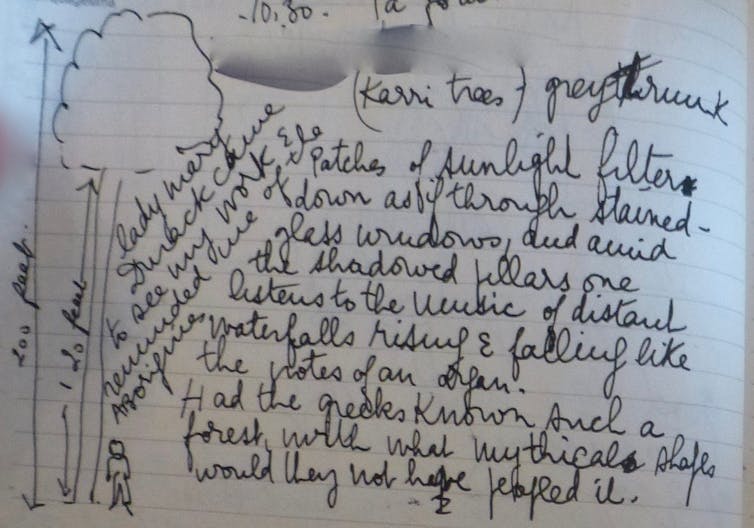 -10.30.
(Karri trees) grey trunk
Patches of sunlight filter
down as if through stained-
glass windows, and amid
the shadowed pillars one
listens to the music of distant
waterfalls rising & falling like
the notes of an organ.
Had the greeks known such a
forest, with what mythical shapes
would they not have peopled it.
200 feet.
120 feet
lady mary
Durack came
to see my work & she
reminded me of
Aborigines